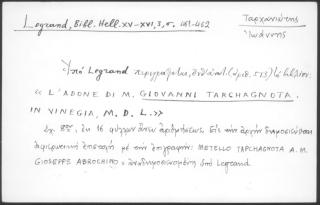 Legrand, Bibl. Hell. XV-XVI, 3, σ. 461-462
Ταρχανιώτης
Ἰωάννης
Ὑπό Legrand περιγράφεται, (ἀριθ. 513) τό βιβλίον:
« L'ADONE DI M. GIOVANNI TARCHAGNOTA.
IN VINEGIA, M. D. L. »
Σχ. 8ον, ἐκ 16 φύλλων ἄνευ ἀριθμήσεως. Εἰς τήν ἀρχήν δημοσιεύεται
ἀφιερωτική ἐπιστολή μέ τήν ἐπιγραφήν: METELLO TARCHAGNOTA A. M.
GIOSEPPE ABROCHINO, ἀναδημοσιευομένη ὑπό Legrand.